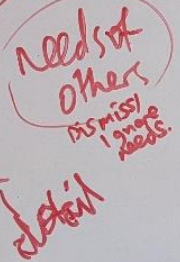 Needs of
others
Dismiss/
ignore
needs.